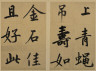 上青蠅
吊壽如
金石佳
且好此